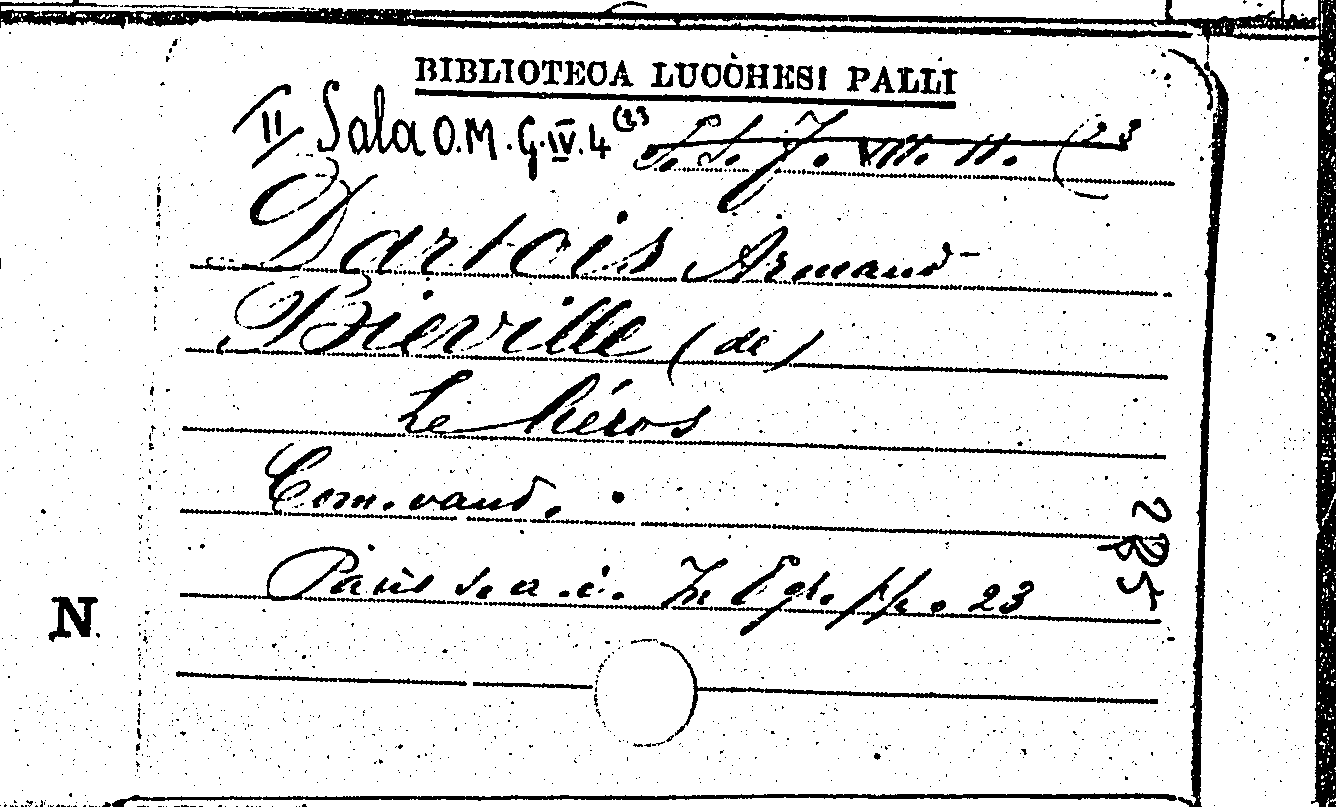 BIBLIOTECA LUCCHESI PALLI
II Sala O.M. G.IV.4 (23 S.S. J. VII. II. (23
Dartois Armand
Bieville (de)
Le héros
Com. vaud.
Paris s. a. i. In Egr. pp. 23
N